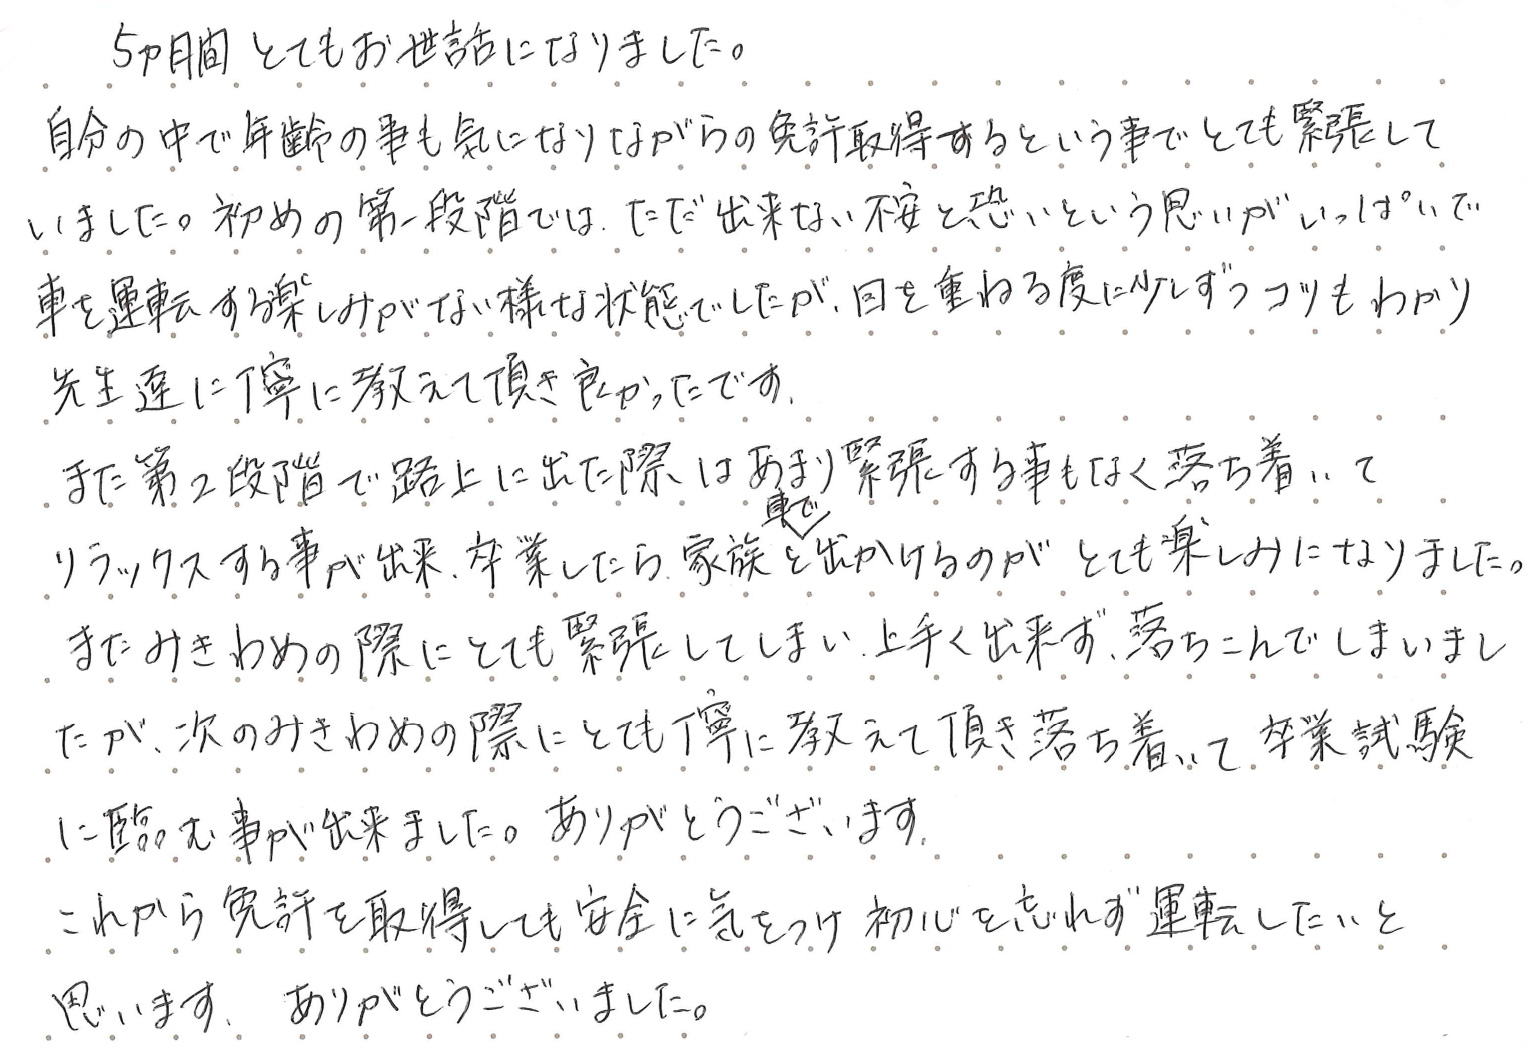 5ヵ月間とてもお世話になりました。
自分の中で年齢の事も気になりながらの免許取得するという事でとても緊張して
いました。初めの第一段階では、ただ出来ない不安と恐いという思いがいっぱいで
車を運転する楽しみがない様な状態でしたが、回を重ねる度に少しずつコツもわかり
先生達に丁寧に教えて頂き良かったです。
また第2段階で路上に出た際はあまり緊張する事もなく落ち着いて
車で
リラックスする事が出来、卒業したら、家族と出かけるのがとても楽しみになりました。
またみきわめの際にとても緊張してしまい、上手く出来ず、落ちこんでしまいまし
たが、次のみきわめの際にとても丁寧に教えて頂き落ち着いて卒業試験
に臨む事が出来ました。ありがとうございます。
これから免許を取得しても安全に気をつけ初心を忘れず運転したいと
思います。ありがとうございました。